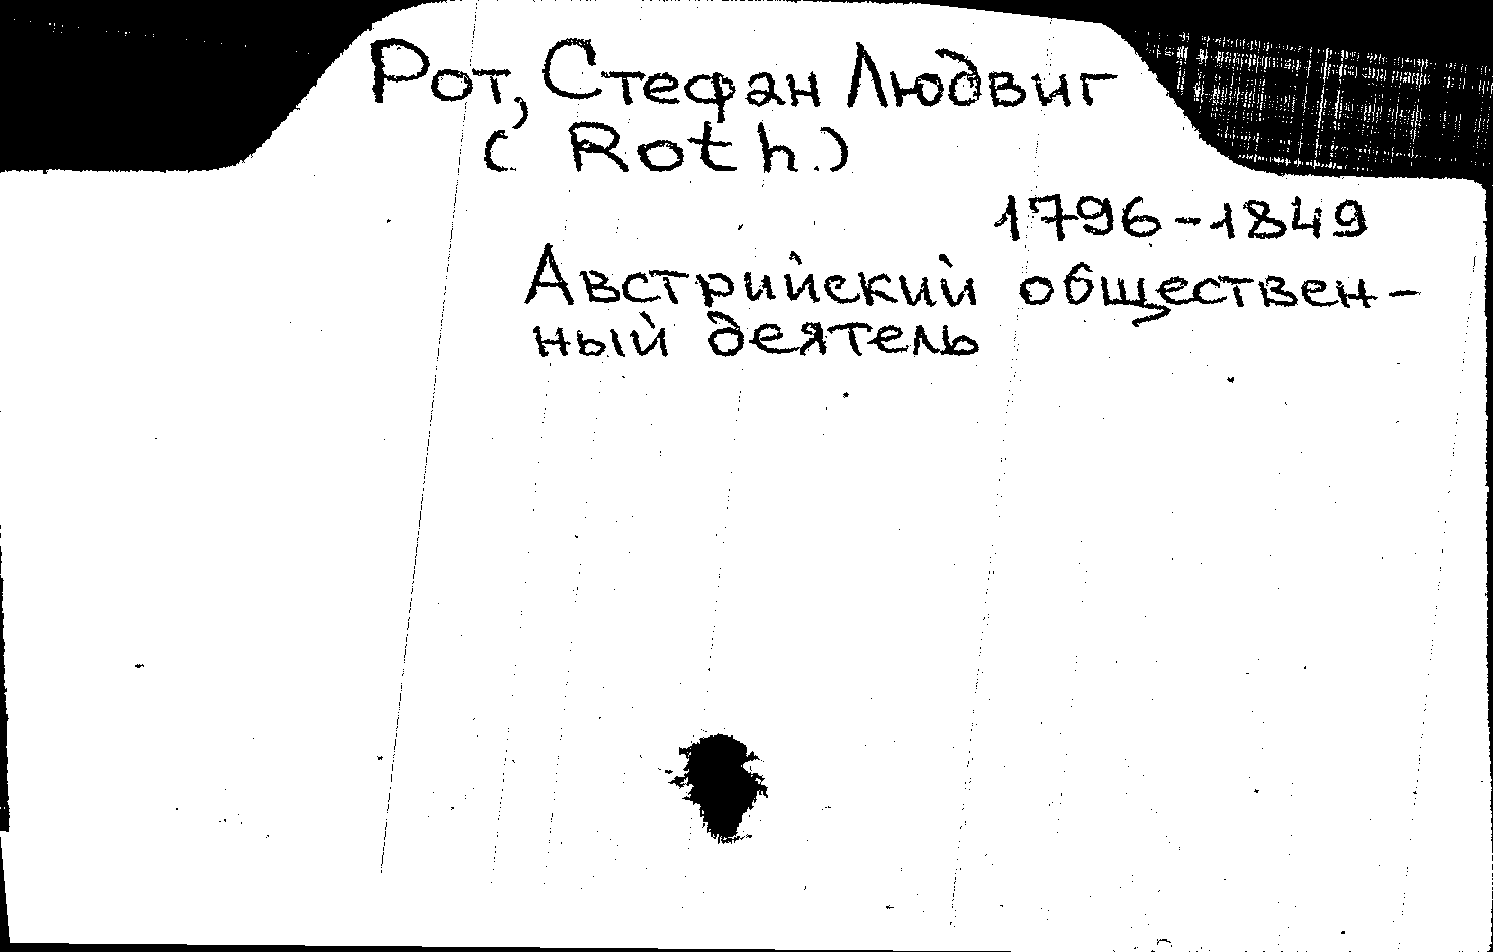 Рот, Стефан Людвиг
( Roth.)
1796-1849
Австрийский обществен-
ный деятель